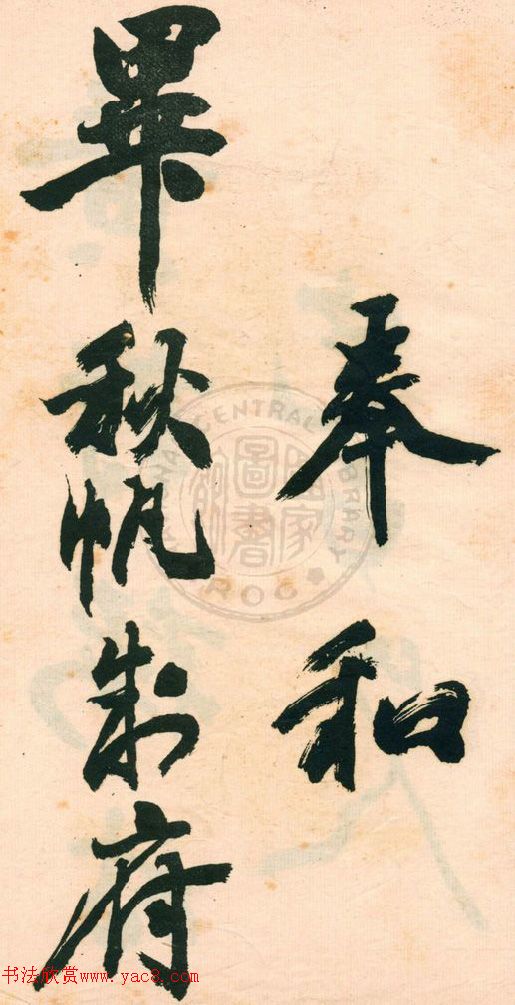 奉和
畢秋帆制府
NATIONAL CENTRAL LIBRARY
國家圖書館
ROC
书法欣赏www.yac8.com